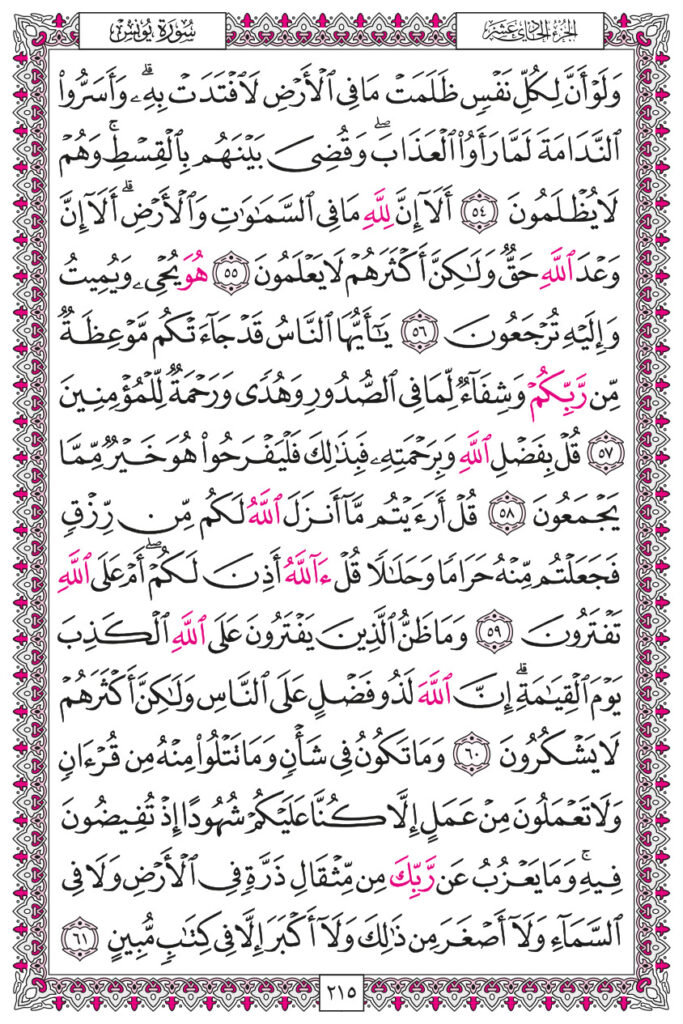 سُورَةُ يُونُسَ
الجزء الحادي عشر
وَلَوۡ أَنَّ لِكُلِّ نَفۡسٖ ظَلَمَتۡ مَا فِي ٱلۡأَرۡضِ لَٱفۡتَدَتۡ بِهِۦۗ وَأَسَرُّواْ
ٱلنَّدَامَةَ لَمَّا رَأَوُاْ ٱلۡعَذَابَۖ وَقُضِيَ بَيۡنَهُم بِٱلۡقِسۡطِۚ وَهُمۡ
لَا يُظۡلَمُونَ ٥٤ أَلَآ إِنَّ لِلَّهِ مَا فِي ٱلسَّمَٰوَٰتِ وَٱلۡأَرۡضِۗ أَلَآ إِنَّ
وَعۡدَ ٱللَّهِ حَقّٞ وَلَٰكِنَّ أَكۡثَرَهُمۡ لَا يَعۡلَمُونَ ٥٥ هُوَ يُحۡيِۦ وَيُمِيتُ
وَإِلَيۡهِ تُرۡجَعُونَ ٥٦ يَٰٓأَيُّهَا ٱلنَّاسُ قَدۡ جَآءَتۡكُم مَّوۡعِظَةٞ
مِّن رَّبِّكُمۡ وَشِفَآءٞ لِّمَا فِي ٱلصُّدُورِ وَهُدٗى وَرَحۡمَةٞ لِّلۡمُؤۡمِنِينَ
٥٧ قُلۡ بِفَضۡلِ ٱللَّهِ وَبِرَحۡمَتِهِۦ فَبِذَٰلِكَ فَلۡيَفۡرَحُواْ هُوَ خَيۡرٞ مِّمَّا
يَجۡمَعُونَ ٥٨ قُلۡ أَرَءَيۡتُم مَّآ أَنزَلَ ٱللَّهُ لَكُم مِّن رِّزۡقٖ
فَجَعَلۡتُم مِّنۡهُ حَرَامٗا وَحَلَٰلٗا قُلۡ ءَآللَّهُ أَذِنَ لَكُمۡۖ أَمۡ عَلَى ٱللَّهِ
تَفۡتَرُونَ ٥٩ وَمَا ظَنُّ ٱلَّذِينَ يَفۡتَرُونَ عَلَى ٱللَّهِ ٱلۡكَذِبَ
يَوۡمَ ٱلۡقِيَٰمَةِۗ إِنَّ ٱللَّهَ لَذُو فَضۡلٍ عَلَى ٱلنَّاسِ وَلَٰكِنَّ أَكۡثَرَهُمۡ
لَا يَشۡكُرُونَ ٦٠ وَمَا تَكُونُ فِي شَأۡنٖ وَمَا تَتۡلُواْ مِنۡهُ مِن قُرۡءَانٖ
وَلَا تَعۡمَلُونَ مِنۡ عَمَلٍ إِلَّا كُنَّا عَلَيۡكُمۡ شُهُودًا إِذۡ تُفِيضُونَ
فِيهِۚ وَمَا يَعۡزُبُ عَن رَّبِّكَ مِن مِّثۡقَالِ ذَرَّةٖ فِي ٱلۡأَرۡضِ وَلَا فِي
ٱلسَّمَآءِ وَلَآ أَصۡغَرَ مِن ذَٰلِكَ وَلَآ أَكۡبَرَ إِلَّا فِي كِتَٰبٖ مُّبِينٍ ٦١
٢١٥